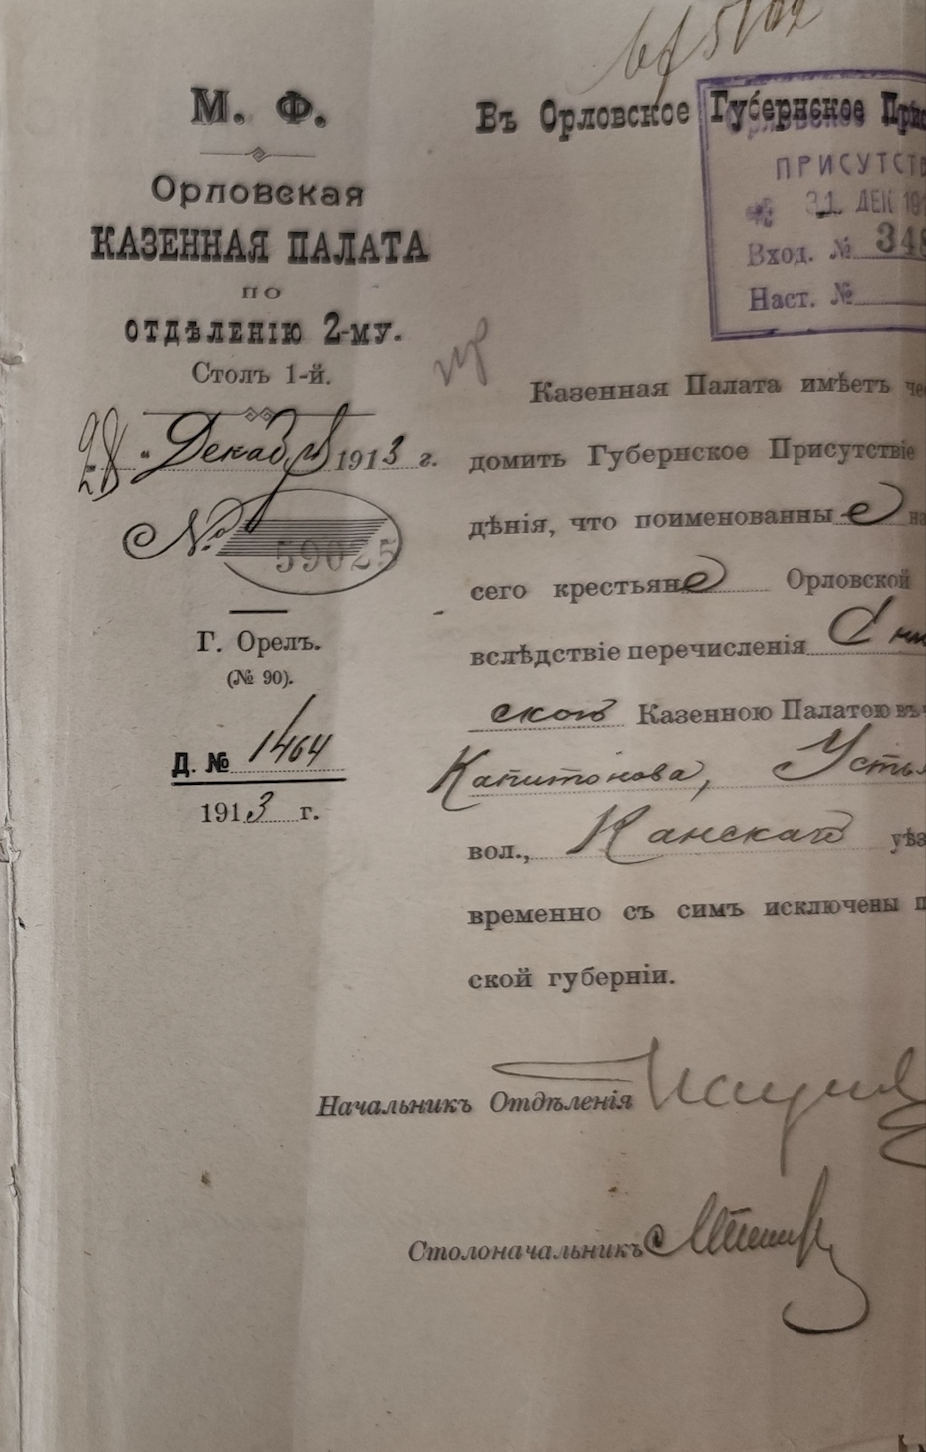 М. Ф.
Орловская
КАЗЕННАЯ ПАЛАТА
ПО
ОТДѢЛЕНІЮ 2-МУ.
Столъ 1-й.
28 " Декабря 1913 г.
№ 59025
Г. Орелъ.
(№ 90).
Д. № 1464
1913 г.
Въ Орловское Губернское При
ПРИСУТСТ
31 ДЕК 191
Вход. № 348
Наст. №
Казенная Палата имѣетъ че
домить Губернское Присутствіе
дѣнія, что поименованные на
сего крестьяне Орловской
вслѣдствіе перечисленія Ени
ской Казенною Палатою въ
Капитонова, Усть
вол., Канскаго уѣз
временно съ симъ исключены п
ской губерніи.
Начальникъ Отдѣленія
Столоначальникъ